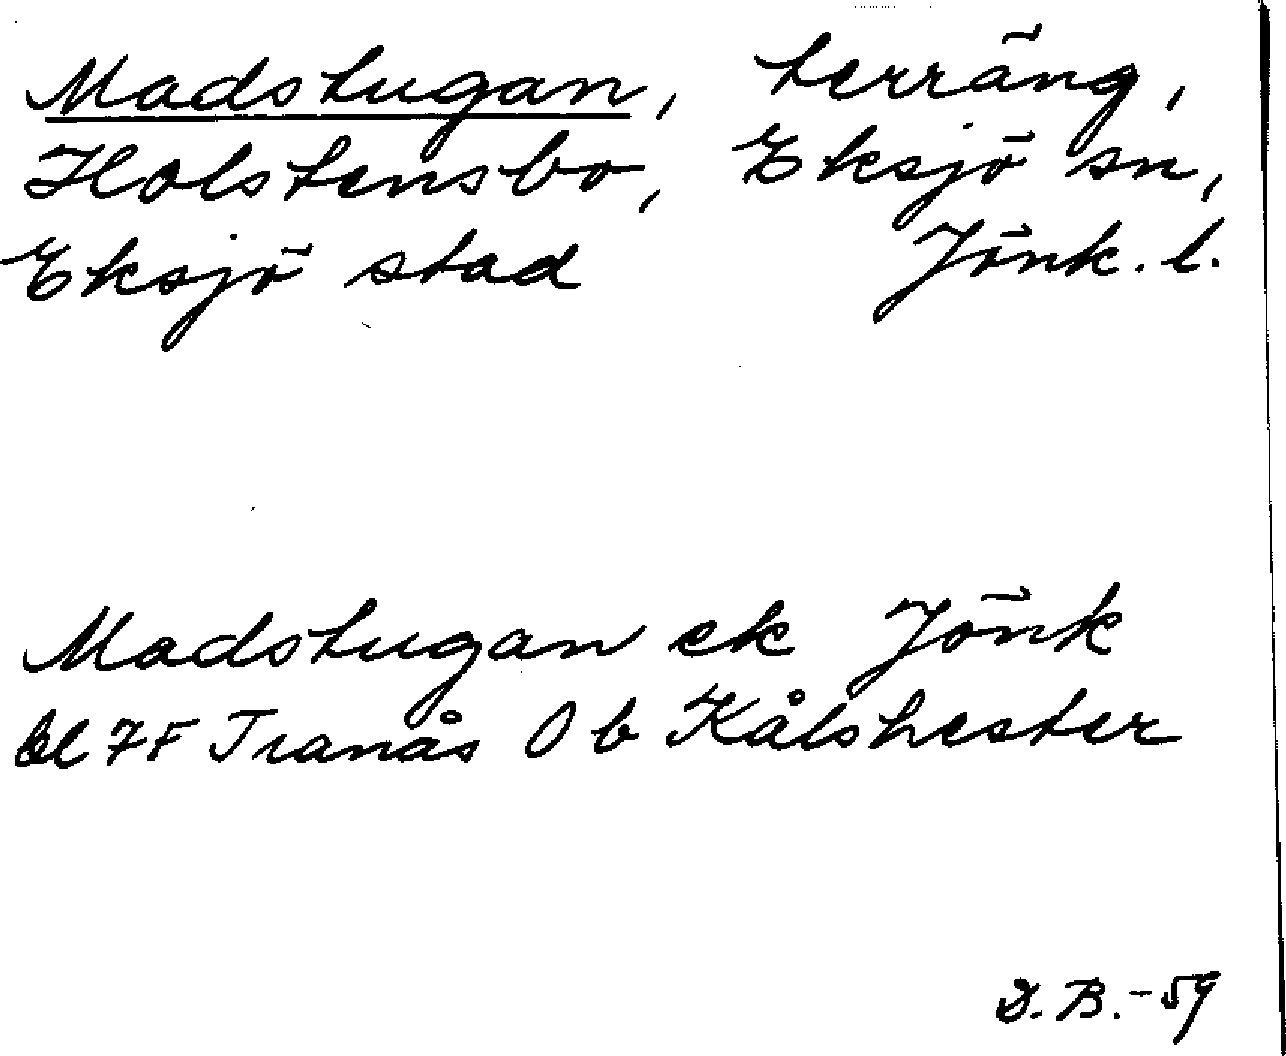 Madstugan, terräng,
Holstensbo, Eksjö sn,
Eksjö stad Jönk. l.
Madstugan ek Jönk
bl 7F Tranås 0b Kålshester
D.B.-59